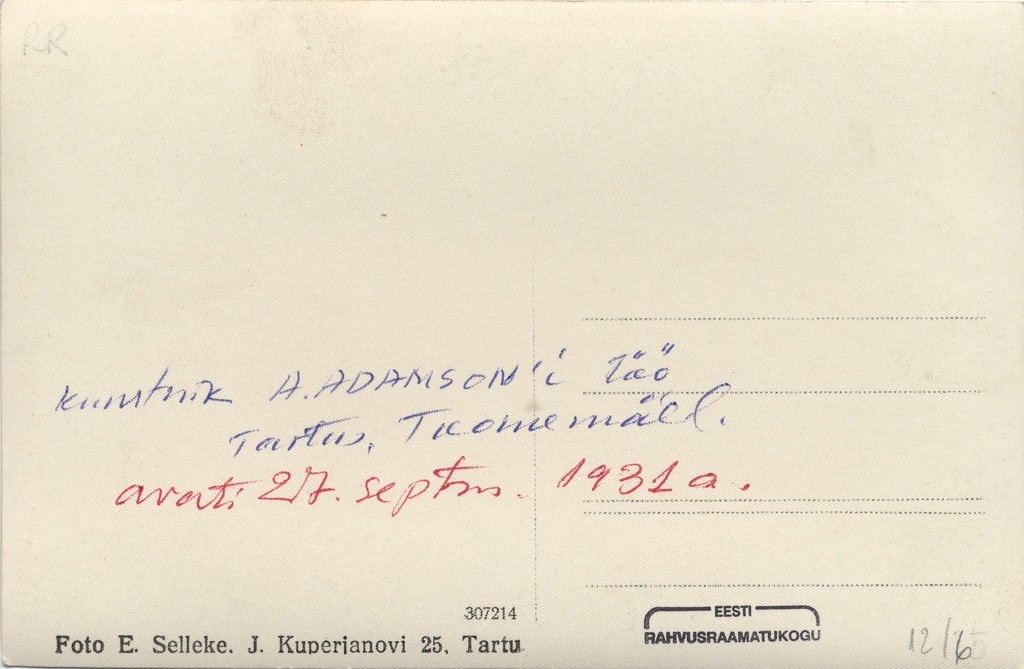 RR
kunstnik A. ADAMSON'i töö
Tartus, Toomemäel.
avati 27. septm. 1931 a.
307214
Foto E. Selleke. J. Kuperjanovi 25, Tartu
EESTI
RAHVUSRAAMATUKOGU
12/6